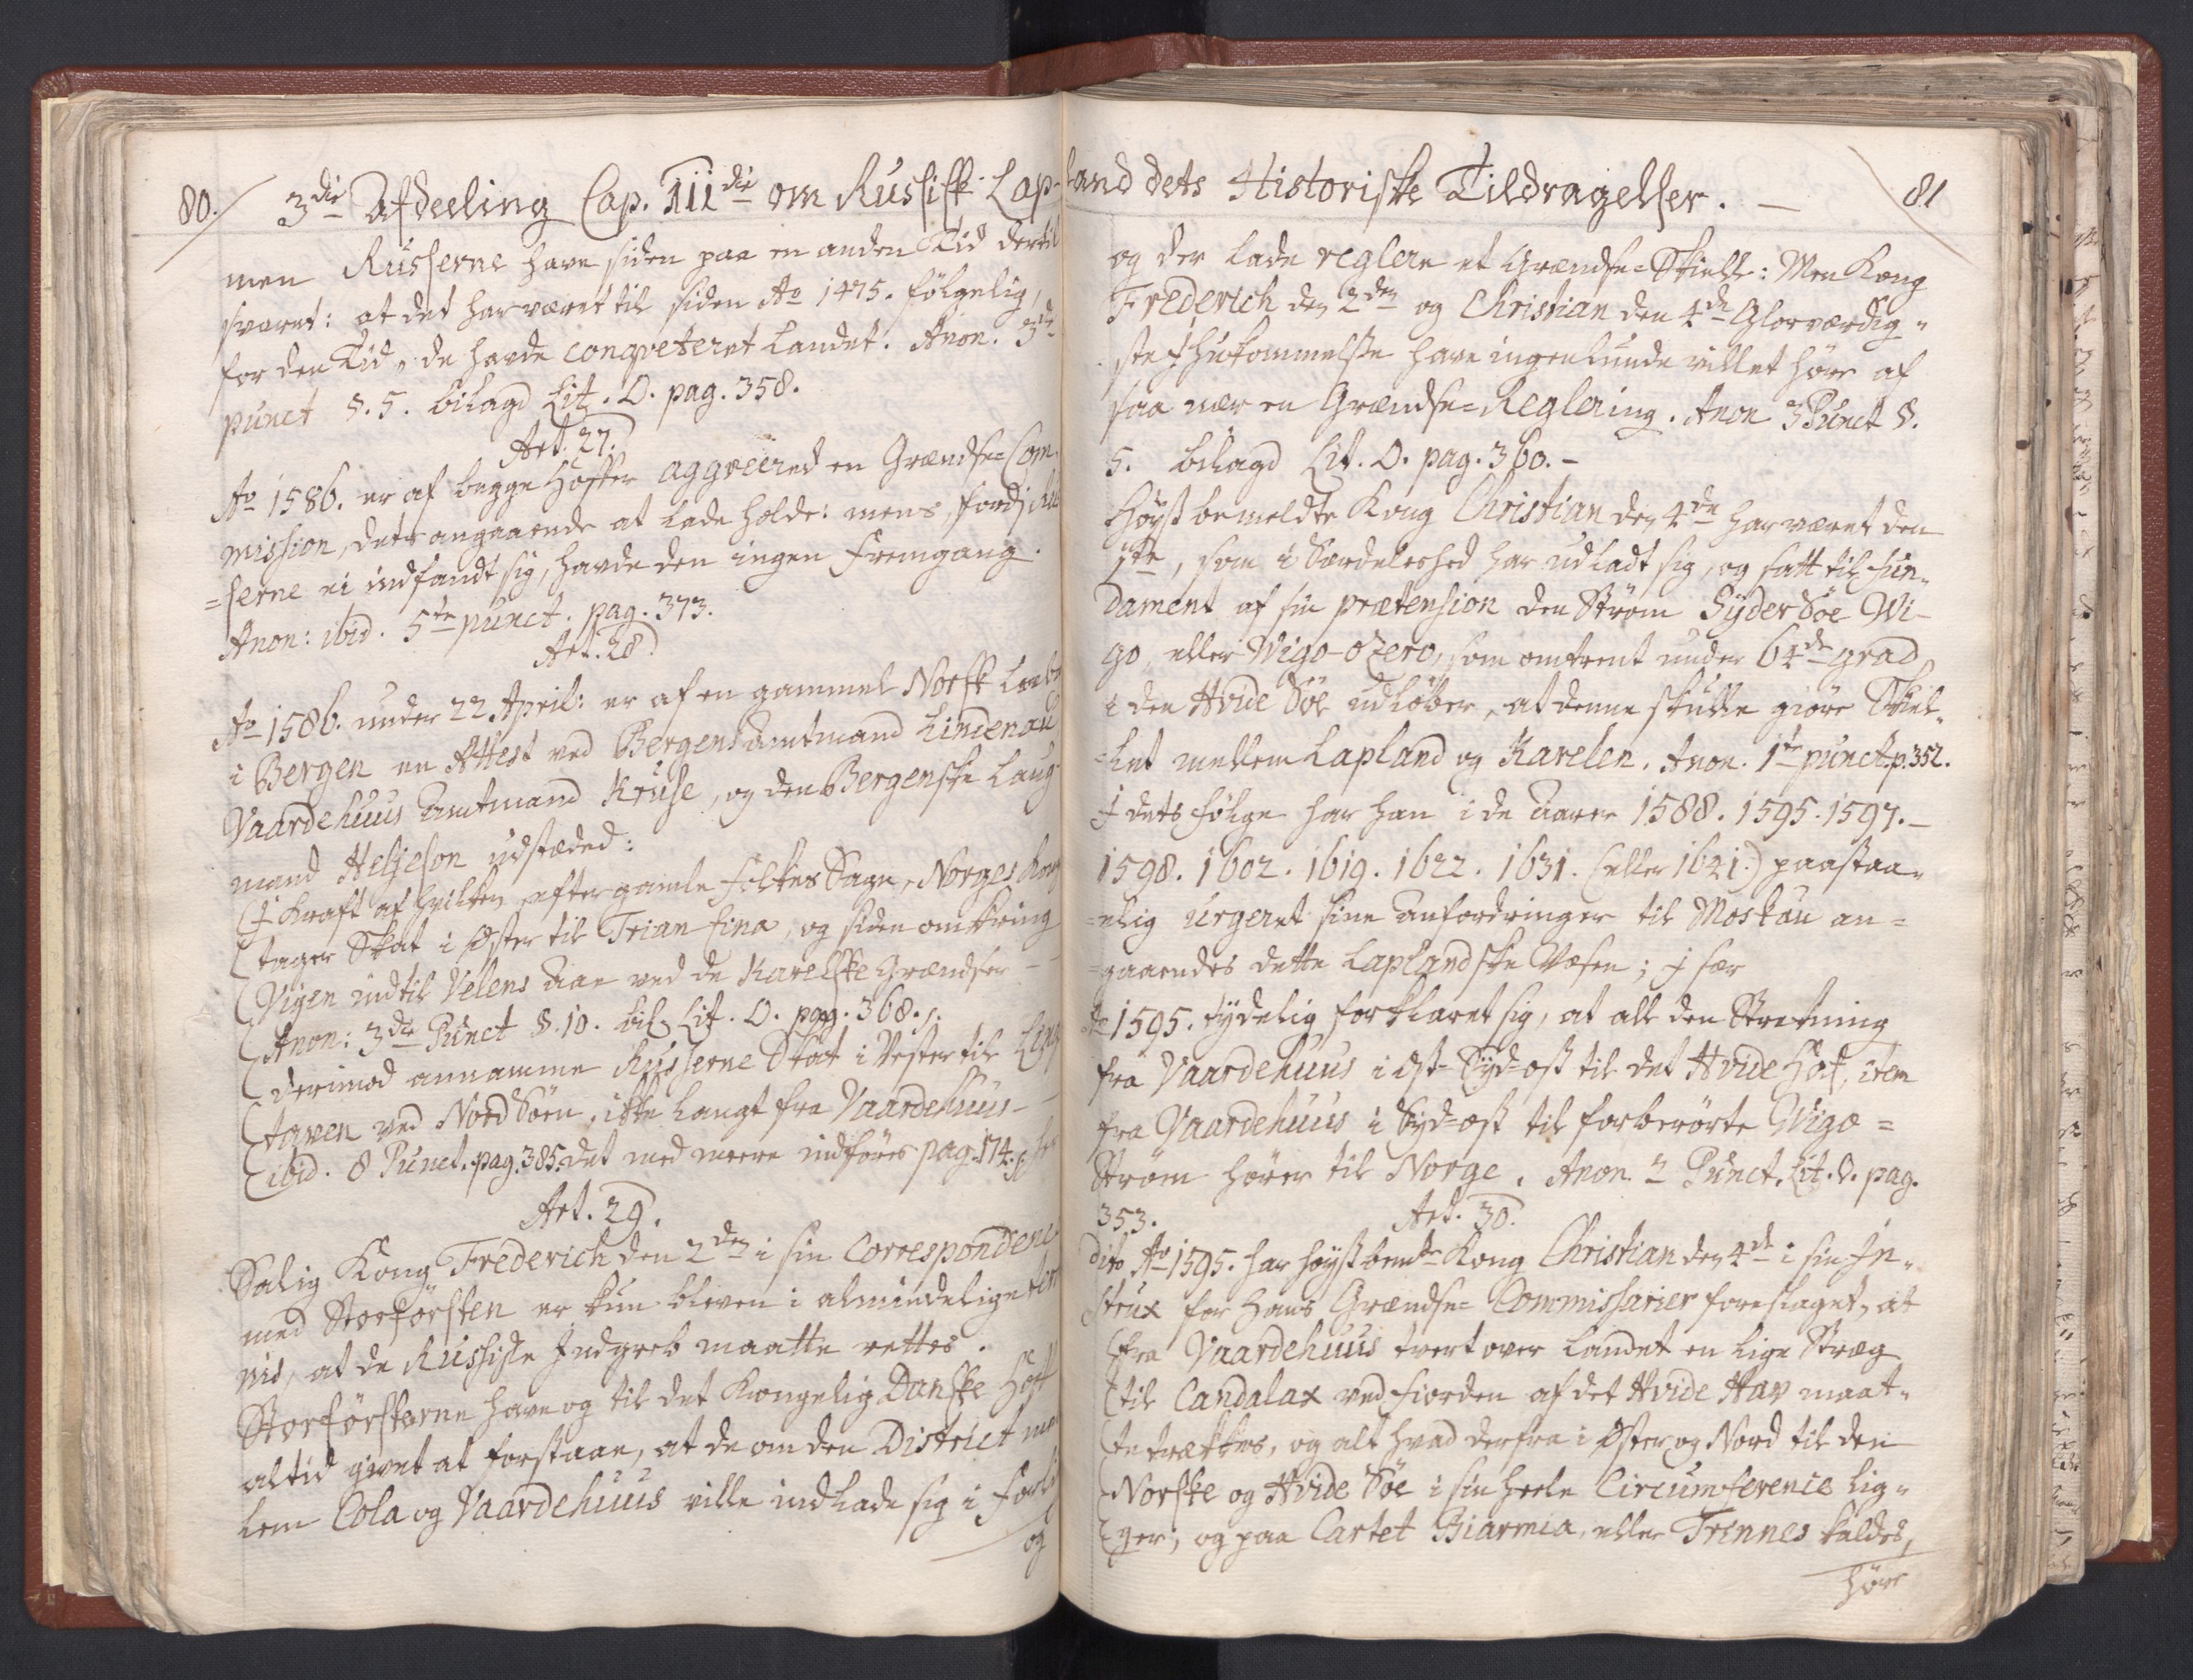 80.
3die Afdeeling Cap. III die om Russisk Lap-
men Russerne have siden paa en anden Tid dertil
svaret: at det har været til siden Ao 1475. følgelig,
for den Tid, de havde conqveteret Landet. Anon. 3de
punct §. 5. bilagd Lit. O. pag. 358.
Art. 27.
Ao 1586. er af begge Hoffer aggreeret en Grændse-Com-
mission, dets angaaende at lade holde: mens, fordi Rus-
=serne ei indfandt sig, havde den ingen Fremgang.
Anon: ibid. 5te punct. pag. 373.
Art. 28.
Ao 1586. under 22 April: er af en gammel Norsk
i Bergen en Attest ved Bergens Amtmand Lindenau
Vaardehuus Amtmand Kruse, og den Bergenske Laug-
mand Heljeson udstæded:
(I Kraft af hvilken, efter gamle folkes Sagn, Norges Kong
(tager Skat i Øster til Trian Eina, og siden omkring
(Vigen indtil Velens Aae ved de Karelske Grændser -
(Anon: 3die Punct §. 10. bil. Lit. O. pag. 368.,
(derimod annamme Russerne Skat i Vester til
( ved NordSøen, ikke langt fra Vaardehuus -
(ibid. 8 Punct. pag. 385. det med meere indføres pag. 174.
Art. 29.
Salig Kong Frederich den 2den i sin Correspondence
med Storførsten er kun bleven i almindelige
, at de Russiske Indgreb maatte rettes.
Storførsterne have og til det Kongelig Danske Hoff
altid givet at forstaae, at de om den District mel
lem Cola og Vaardehuus ville indlade sig i
og
land dets Historiske Tildragelser. —
81
og der lade reglere et Grændse-Skiell: Men Kong
Frederich den 2den og Christian den 4de Glorværdig-
ste Ihukommelse have ingenlunde villet høre af
saa nær en Grændse-Reglering. Anon 3 Punct §.
5. bilagd Lit. O. pag. 360. -
Høystbemeldte Kong Christian den 4de har været den
1ste, som i Særdeleshed har udladt sig, og satt til fun-
dament af sin prætension den Strøm Syder Söe Wi-
go, eller Wigo-ozero, som omtrent under 64de grad
i den Hvide Söe udløber, at denne skulle giøre Skiel-
=let mellem Lapland og Karelen. Anon. 1te punct. p. 352.
I dets følge har han i de Aarer 1588. 1595. 1597. —
1598. 1602. 1619. 1622. 1631. (eller 1641.) paastaa-
=elig urgeret sine Anfordringer til Moskau an=
=gaaendes dette Laplandske Væsen; I sær
Ao 1595. tydelig forklaret sig, at all den Strekning
fra Vaardehuus i Ost-Syd-ost til det Hvide Haf, item
fra Vaardehuus i Syd-ost til forberörte Wigo=
Strøm hører til Norge. Anon. Punct. Lit. O. pag.
353.
Art. 30.
dito Ao 1595. har høystbemte Kong Christian den 4de i sin In-
strux for Hans Grændse-Commissarier foreslaget, at
(fra Vaardehuus tvert over Landet en lige Streg
(til Candalax ved Fiorden af det Hvide Hav maat-
(te trækkes, og alt hvad derfra i Øster og Nord til den
(Norske og Hvide Söe i sin heele Circumference lig-
(ger; og paa Cartet Biarmia, eller Trennes kaldes,
høre